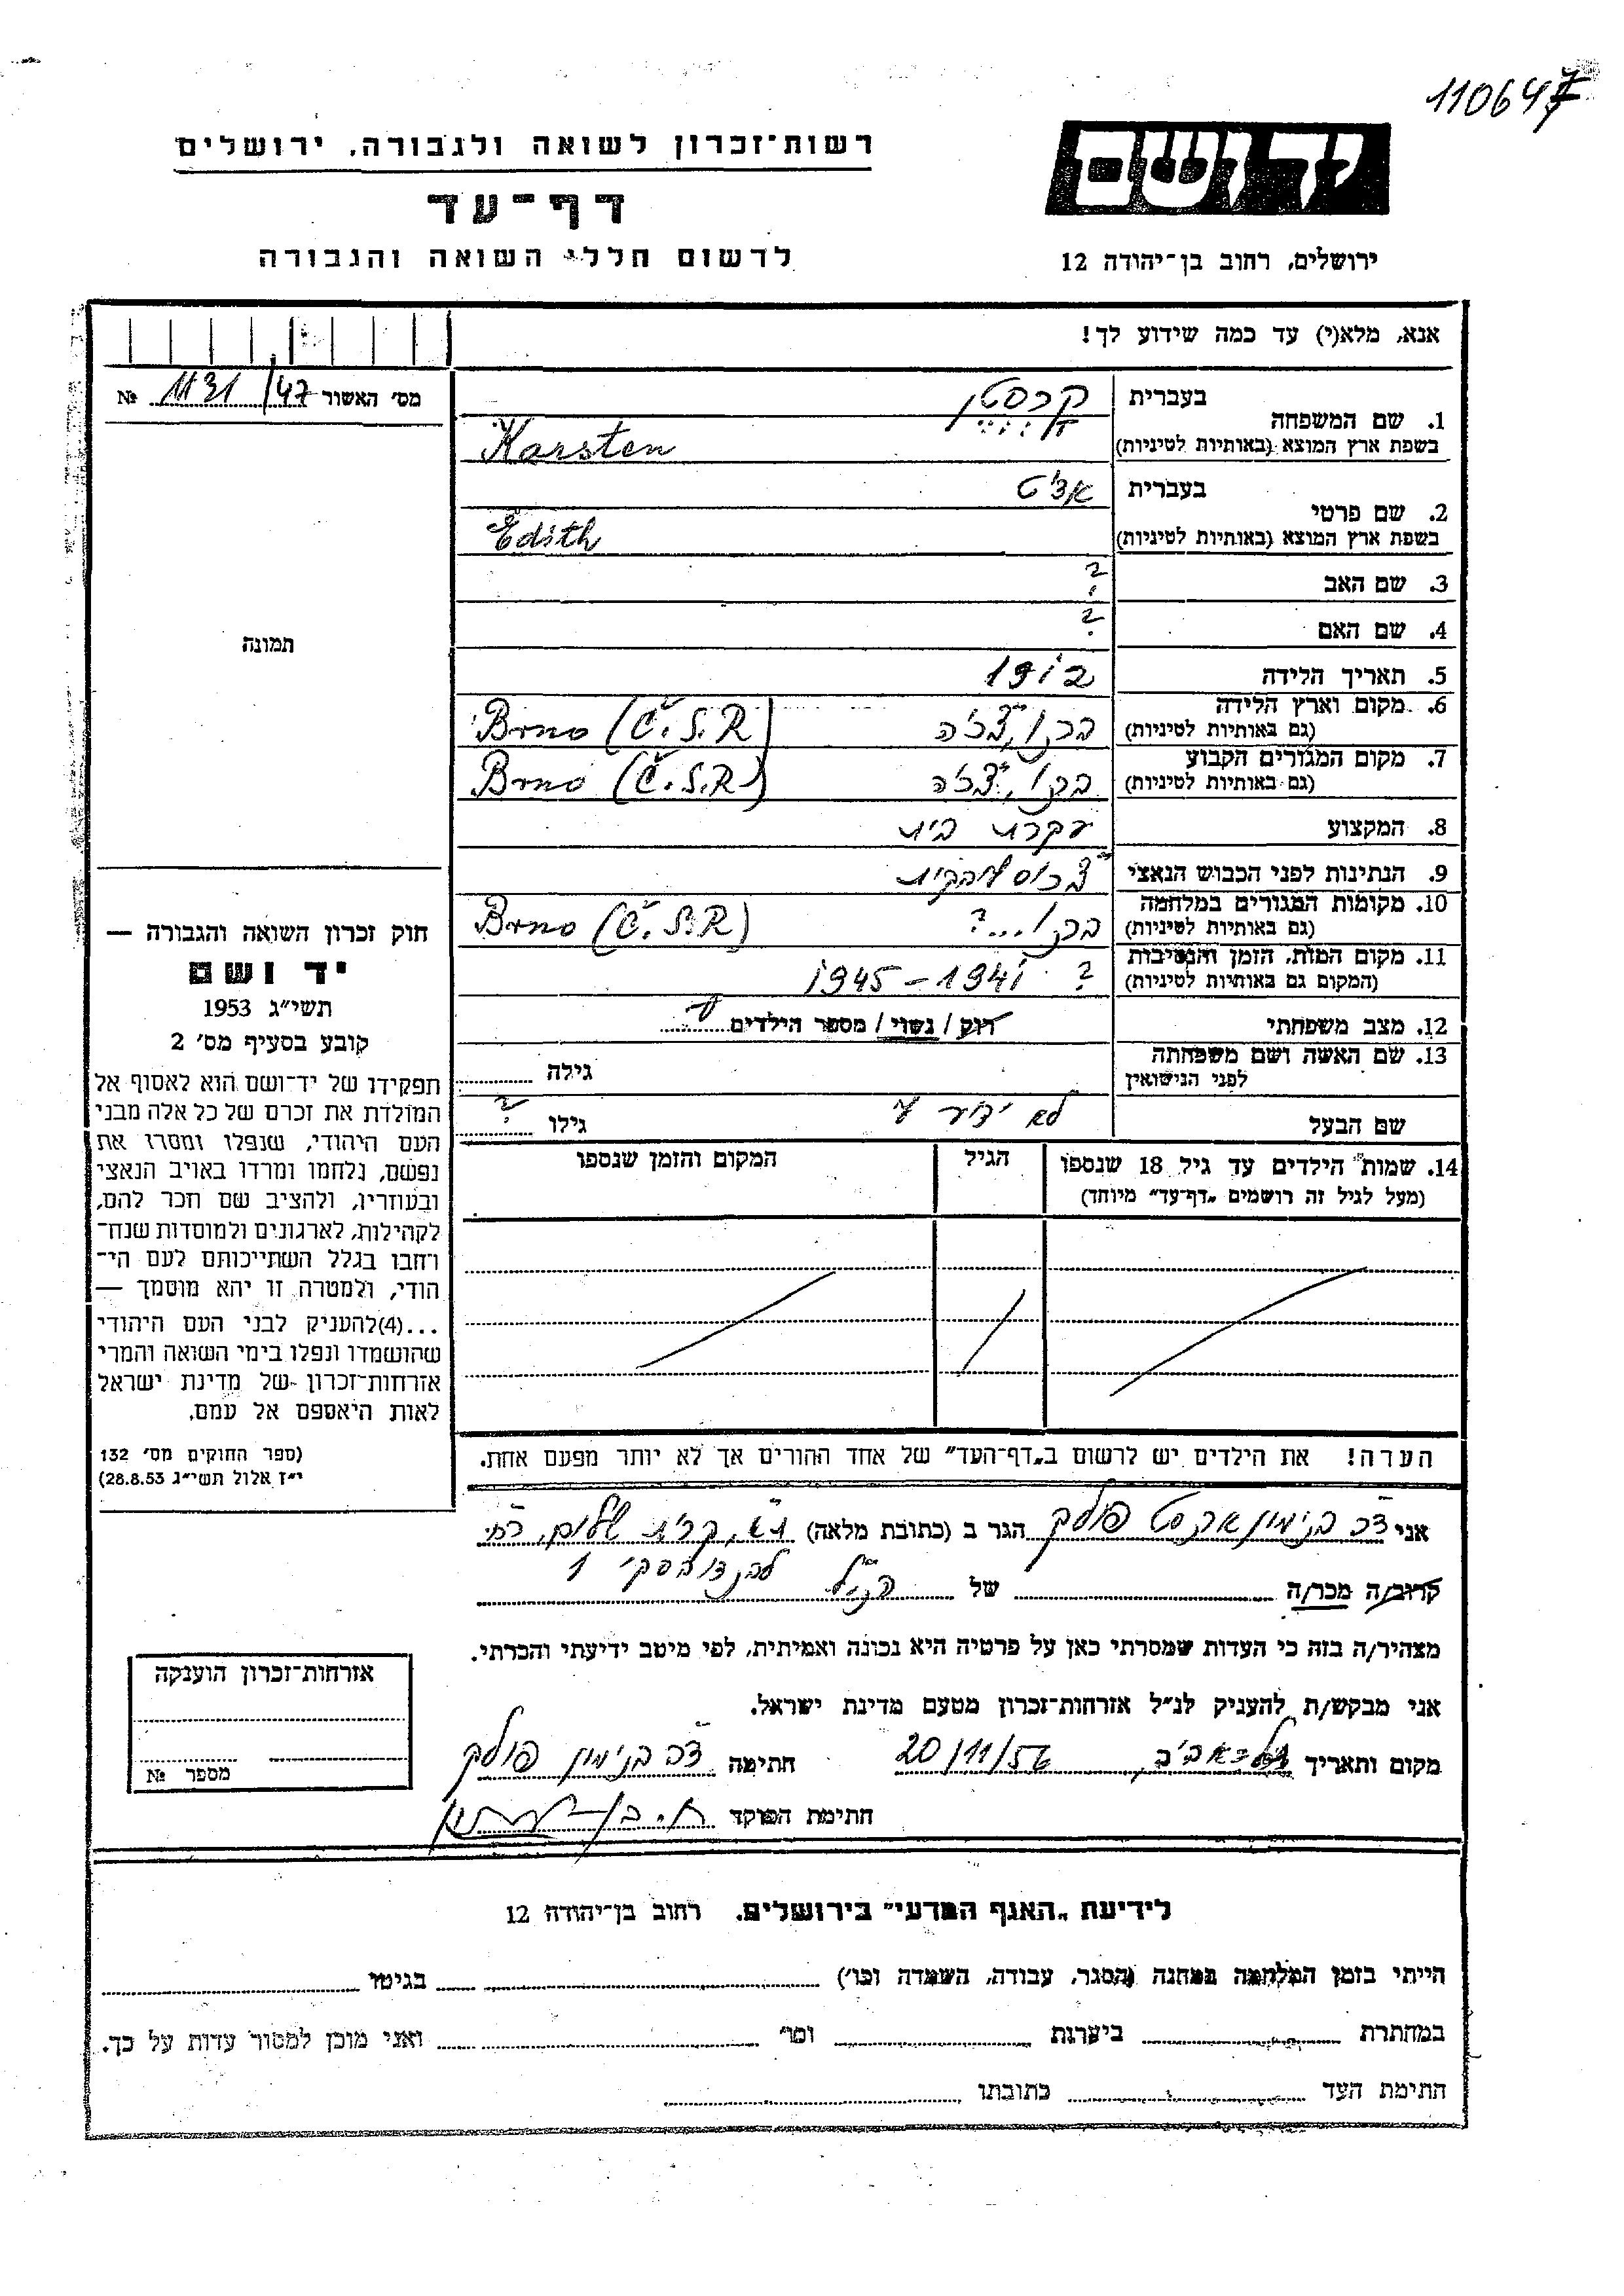 110647
ידושם
רשות־זכרון לשואה ולגבורה, ירושלים
דף־עד
ירושלים, רחוב בן־יהודה 12
לרשום חללי השואה והגבורה
אנא, מלא(י) עד כמה שידוע לך!
מס׳ האשור 1131/47 №
1. שם המשפחה
בעברית קרסטן
בשפת ארץ המוצא (באותיות לטיניות) Karsten
2. שם פרטי
בעברית אדית
בשפת ארץ המוצא (באותיות לטיניות) Edith
3. שם האב ?
4. שם האם ?
תמונה
5. תאריך הלידה 1912
6. מקום וארץ הלידה
(גם באותיות לטיניות) ברנו, צ׳כיה Brno (Č.S.R)
7. מקום המגורים הקבוע
(גם באותיות לטיניות) ברנו, צ׳כיה Brno (Č.S.R)
8. המקצוע עקרת בית
9. הנתינות לפני הכבוש הנאצי
10. מקומות המגורים במלחמה
(גם באותיות לטיניות) ברנו...? Brno (Č.S.R)
11. מקום המות, הזמן והנסיבות
(המקום גם באותיות לטיניות) ? 1941–1945
12. מצב משפחתי רוק/ נשוי/ מספר הילדים
13. שם האשה ושם משפחתה
לפני הנישואין
גילה
שם הבעל לא ידוע לי גילו ?
14. שמות הילדים עד גיל 18 שנספו
(מעל לגיל זה רושמים „דף־עד״ מיוחד)
הגיל
המקום והזמן שנספו
הערה! את הילדים יש לרשום ב„דף־העד״ של אחד ההורים אך לא יותר מפעם אחת.
חוק זכרון השואה והגבורה —
יד ושם
תשי״ג 1953
קובע בסעיף מס׳ 2
תפקידו של יד־ושם הוא לאסוף אל
המולדת את זכרם של כל אלה מבני
העם היהודי, שנפלו ומסרו את
נפשם, נלחמו ומרדו באויב הנאצי
ובעוזריו, ולהציב שם וזכר להם,
לקהילות, לארגונים ולמוסדות שנח־
רחבו בגלל השתייכותם לעם הי־
הודי, ולמטרה זו יהא מוסמך —
...(4)להעניק לבני העם היהודי
שהושמדו ונפלו בימי השואה והמרי
אזרחות־זכרון של מדינת ישראל
לאות היאספם אל עמם.
(ספר החוקים מס׳ 132
י״ז אלול תשי״ג 28.8.53)
אני ד״ר בנימין ארנסט פולק הגר ב (כתובת מלאה) ת״א, קרית שלום, רח׳
1
קרוב/ה מכר/ה של הנ״ל
מצהיר/ה בזה כי העדות שמסרתי כאן על פרטיה היא נכונה ואמיתית, לפי מיטב ידיעתי והכרתי.
אני מבקש/ת להעניק לנ״ל אזרחות־זכרון מטעם מדינת ישראל.
מקום ותאריך תל־אביב, 20/11/56 חתימה ד״ר בנימין פולק
חתימת הפוקד
אזרחות־זכרון הוענקה
מספר №
לידיעת „האגף המדעי״ בירושלים, רחוב בן־יהודה 12
הייתי בזמן המלחמה במחנה (הסגר, עבודה, השמדה וכו׳) בגיטו
במחתרת ביערות וכו׳ ואני מוכן למסור עדות על כך.
חתימת העד כתובתו